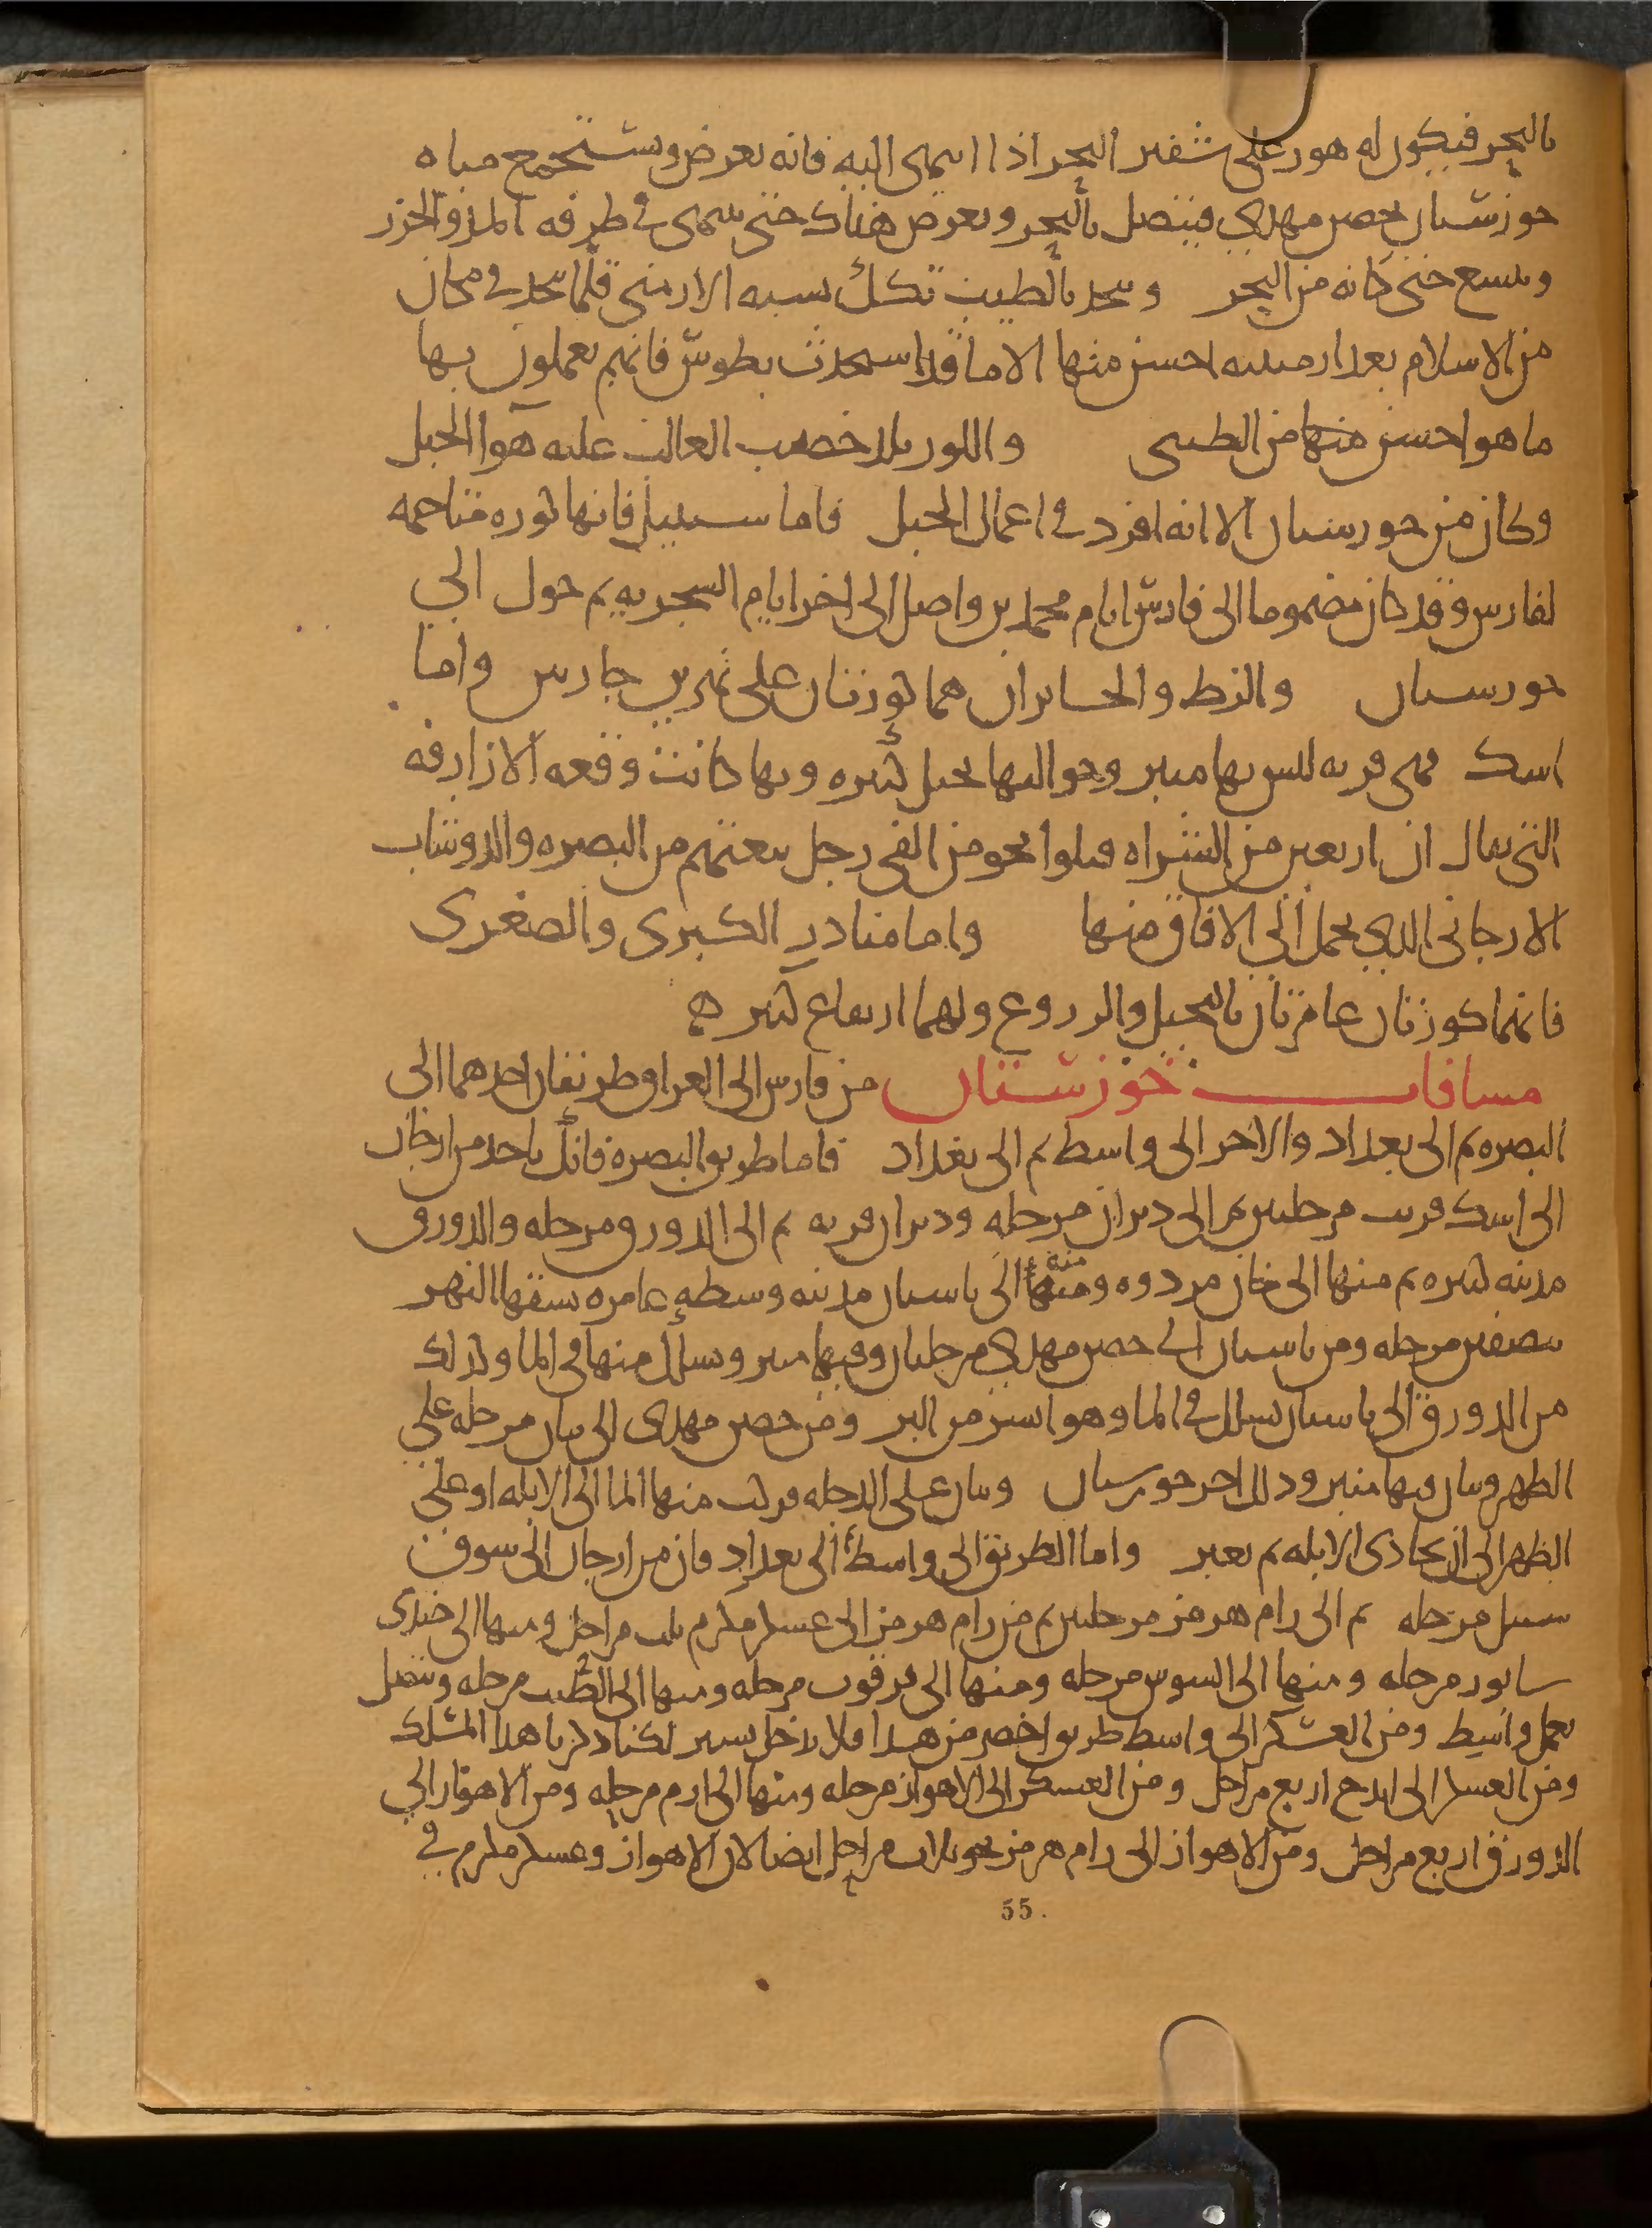 بالبحر فيكون له هور على شفير البحر اذا انتهى اليه فانه يعرض وتستجمع مياه
خوزستان بحصن مهدي فيتصل بالبحر ويعرض هناك حتى ينتهى في طرفه المد والجزر
ويتسع حتى كانه من البحر ويتخذ بالطيب تكك تشبه الارمنى قلما تتخذ في مكان
من الاسلام بعد ارمينيه احسن منها الا ما قد استحدث بطوس فانهم يعملون بها
ما هو احسن منها من الطيبى واللور بلد خصيب الغالب عليه هوا الجبل
وكان من خورستان الا انه افرد في اعمال الجبل فاما سنبيل فانها كوره متاخمه
لفارس وقد كان مضموما الى فارس ايام محمد بن واصل الى اخر ايام السجزيه ثم حول الي
خورستان والزط والخابران هما كورتان على نهرين جارين واما
اسك فهى قريه ليس بها منبر وحواليها نخيل كثيره وبها كانت وقعه الازارقه
التى يقال ان اربعين من الشراه قتلوا نحو من الفى رجل تبعتهم من البصره والدوشاب
الارجانى الذي يحمل الي الافاق منها واما مناذر الكبرى والصغرى
فانهما كورتان عامرتان بالنخيل والزروع ولهما ارتفاع كثير ه
مسافات خوزستان من فارس الى العراق طريقان احدهما الى
البصره ثم الى بغداد والاخر الى واسط ثم الى بغداد فاما طريق البصره فانك تاخذ من ارجان
الى اسك قريب مرحلتين ثم الى ديران مرحله وديران قريه ثم الى الدورق مرحله والدورق
مدينه كبيره ثم منها الى خان مردوه ومنها الى باسيان مدينه وسطه عامره يشقها النهر
نصفين مرحله ومن باسيان الى حصن مهدي مرحلتان وفيها منبر ويسلك منها في الما وكذلك
من الدورق الى باسيان يسلك في الما وهو ايسر من البر ومن حصن مهدى الى بيان مرحله علي
الظهر وبيان وبها منبر وذلك اخر خورستان وبيان على الدجله فركب منها الما الى الابله او على
الظهر الى ان يحاذى الابله ثم يعبر واما الطريق الى واسط الى بغداد فان من ارجان الى سوق
سنبيل مرحله ثم الى رام هرمز مرحلتين ثم من رام هرمز الى عسكر مكرم ثلث مراحل ومنها الى جندى
سابور مرحله ومنها الى السوس مرحله ومنها الى قرقوب مرحله ومنها الى الطيب مرحله ويتصل
بعمل واسط ومن العسكر الى واسط طريق اخصر من هذا فلا يدخل تستر لكنا ذكرنا هذا المسلك
ومن العسكر الى ايدج اربع مراحل ومن العسكر الى الاهواز مرحله ومنها الى ازم مرحله ومن الاهواز الي
الدورق اربع مراحل ومن الاهواز الى رام هرمز نحو ثلاث مراحل ايضا لان الاهواز وعسكر مكرم في
55.